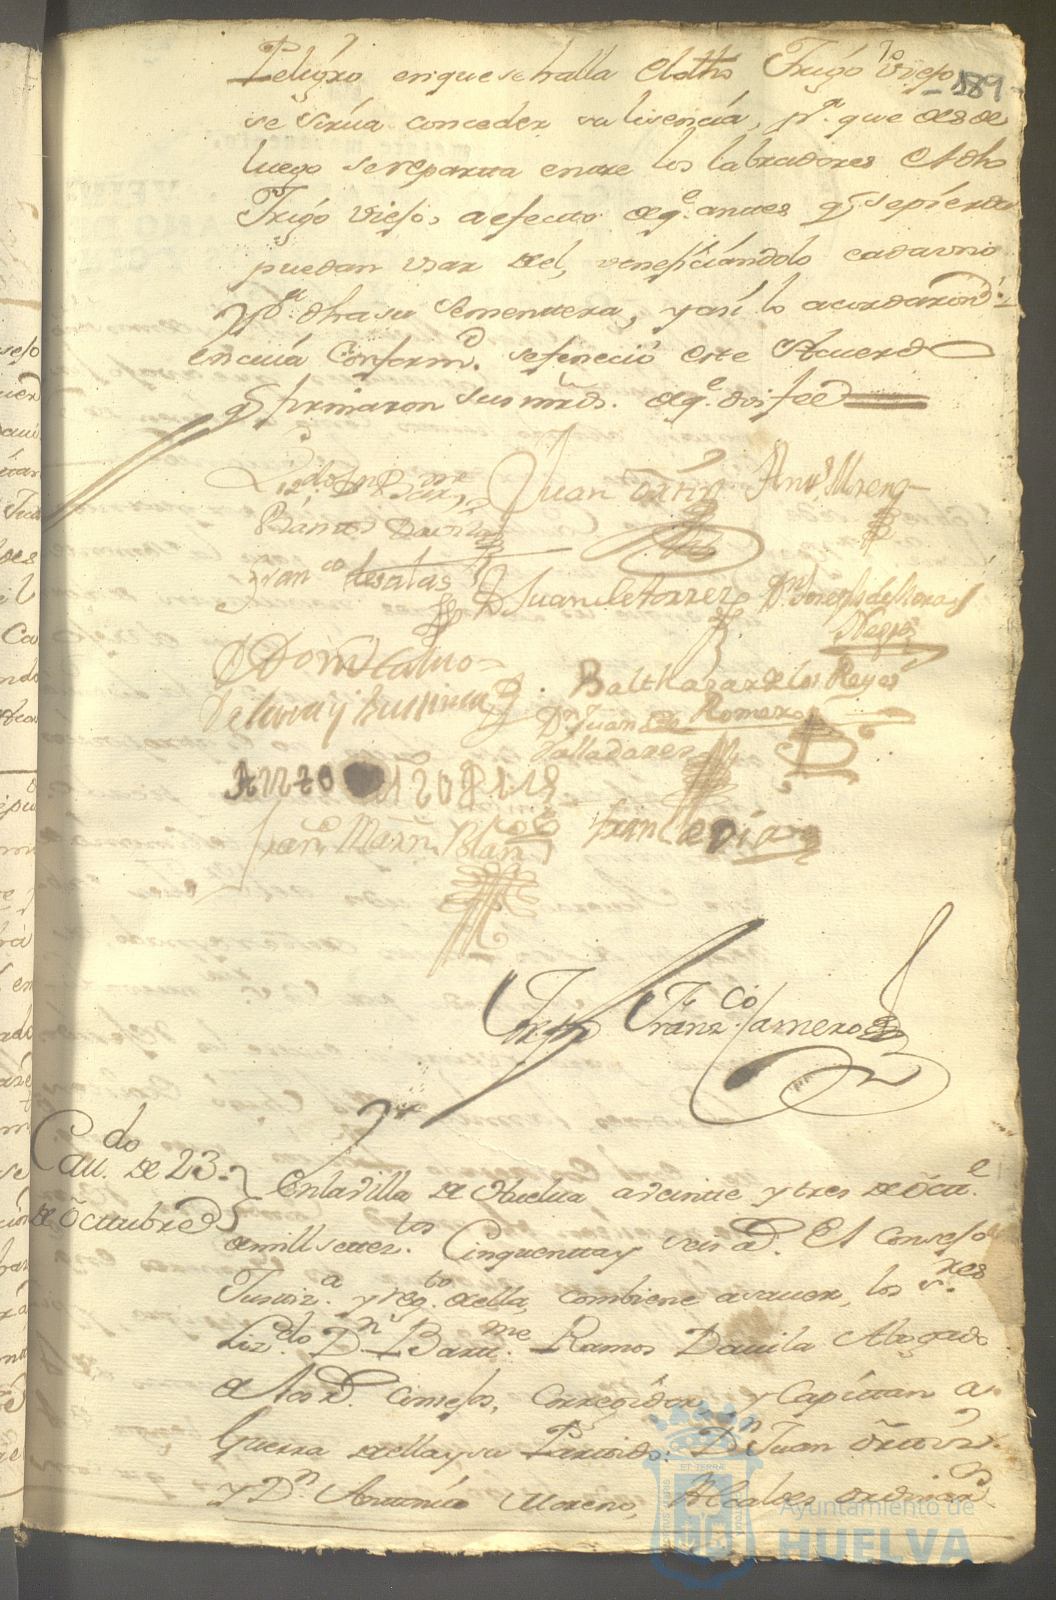 189
Peligro en que se halla el dho Trigo viejo
se sirva conceder su lisencia, pa. que desde
luego se reparta entre los labradores el dho
Trigo viejo, a efecto de qe. antes q se pierda
puedan usar del, veneficiandolo cada uno
pa. dha su sementera, y asi lo acordaron
en cuia Conformd. se feneció este Acuerdo
q firmaron sus mrds. de qe. doi fee
Lizdo. Dn. Barme
Ramos Davila
Juan Ortiz
Anto. Moreno
Franco de salas
D Juan de torres
Dn Joseph de Mora
Negro
Balthazar de los Reyes
Romero
Dn Juan
Valladares
Franco Marn. Blan
Franco. Camero
Cavdo. de 23
de Octtubre
En la villa de Huelva a veintte y tres de Octte.
de mill settezttos. Cinquentta y seis ad. El Consejo
Justtiza. y regto. de ella, combiene a saver, los sres.
Lizdo. Dn Barttme. Ramos Davila Abogado
de los Rd. Consejos, Corregidor y Capittan a
Guerra de ella y su Parttido: Dn Juan Orttiz
y Dn. Antonio Moreno, Alcaldes ordinars
Ayuntamiento de
HUELVA